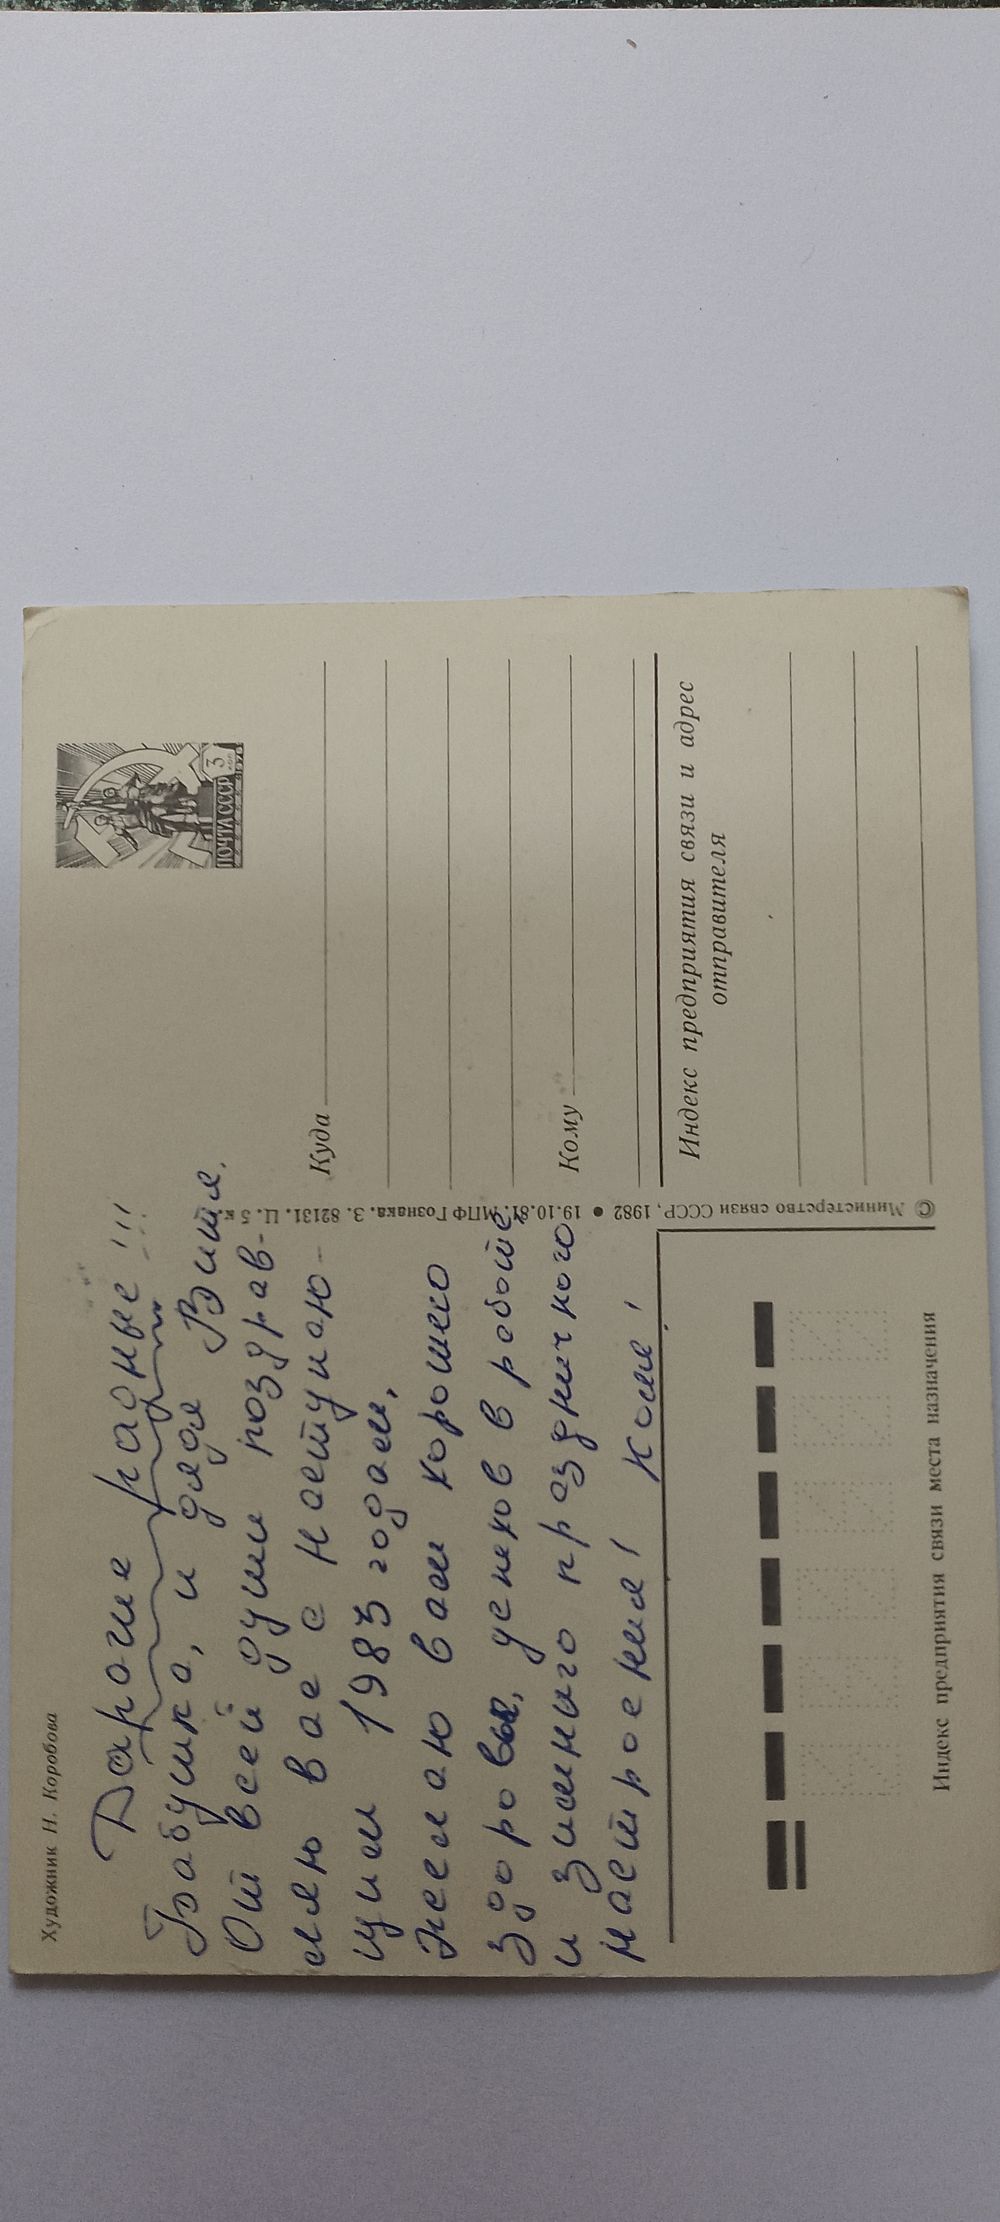 Художник Н. Коробова
Дарогие радные!!!
Бабушка, и дядя Витя.
От всей души поздрав-
ляю вас с наступаю-
щим 1983 годам.
Желаю вам хорошего
здоровья, успехов в работе
и зимниго праздничного
настроения! Коля!
ПОЧТА СССР 3 коп 1978
Куда
Кому
Индекс предприятия связи и адрес
отправителя
© Министерство связи СССР, 1982 • 19.10.81. МПФ Гознака. З. 82131. Ц. 5 к.
Индекс предприятия связи места назначения